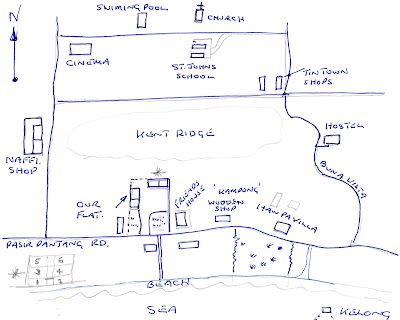 SWIMING POOL
CHURCH
N
CINEMA
ST. JOHNS
SCHOOL
TIN TOWN
SHOPS
KENT RIDGE
HOSTEL
NAFFI.
SHOP
BUNA VISTA
OUR
FLAT.
FRIENDS
HOUSE
'KAMPONG'
WOODEN
SHOP
MAN PAVILLA
PASIR PANTANG RD.
5 6
3 4
1 2
BEACH
SEA
KELONG